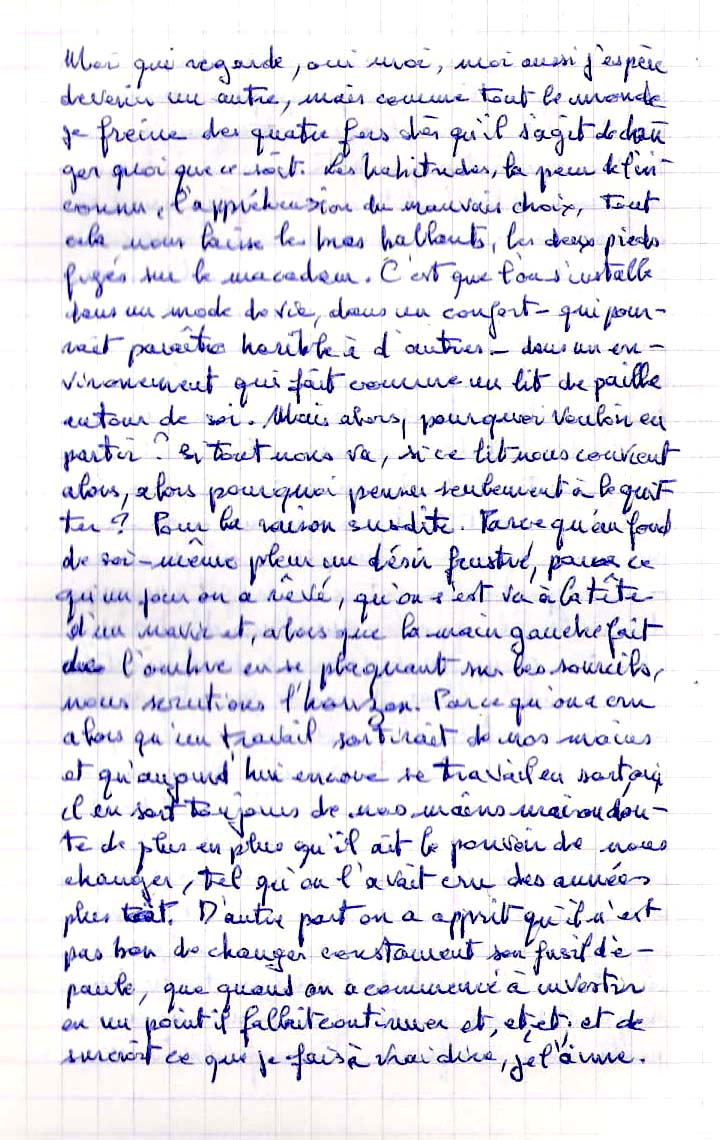 Moi qui regarde, oui moi, moi aussi j'espère
devenir un autre, mais comme tout le monde
je freine des quatre fers dès qu'il s'agit de chan
ger quoi que ce soit. Les habitudes, la peur de l'in-
connu, l'appréhension du mauvais choix, tout
cela nous laisse les bras ballants, les deux pieds
figés sur le macadam. C'est que l'on s'installe
dans un mode de vie, dans un confort - qui pour-
rait paraître horrible à d'autres - dans un en-
vironement qui fait comme un lit de paille
autour de soi. Mais alors, pourquoi vouloir en
partir ? Si tout nous va, si ce lit nous convient
alors, alors pourquoi penser seulement à le quit
ter ? Pour la raison susdite. Parce qu'au fond
de soi-même pleur un désir frustré, parce
qu'un jour on a rêvé, qu'on s'est vu à la tête
d'un navire et, alors que la main gauche fait
de l'ombre en se plaquant sur les sourcils,
nous scrutions l'horizon. Parce qu'on a cru
alors qu'un travail sortirait de nos mains
et qu'aujourd'hui encore ce travail en sort oui
il en sort toujours de nos mains mais on dou-
te de plus en plus qu'il ait le pouvoir de nous
changer, tel qu'on l'avait cru des années
plus tôt. D'autre part on a apprit qu'il n'est
pas bon de changer constament son fusil d'é-
paule, que quand on a commencé à investir
en un point il fallait continuer et, et, et, et de
surcroît ce que je fais à vrai dire, je l'aime.